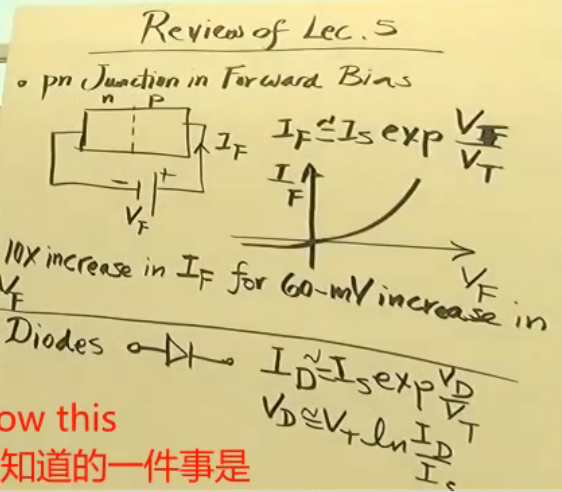 Review of Lec. 5
• pn Junction in Forward Bias
n p
I_F ≅ I_S exp V_F/V_T
I_F
I_F
- +
V_F
V_F
10X increase in I_F for 60-mV increase in
V_F
Diodes I_D ≅ I_S exp V_D/V_T
V_D ≅ V_T ln I_D/I_S
ow this
知道的一件事是